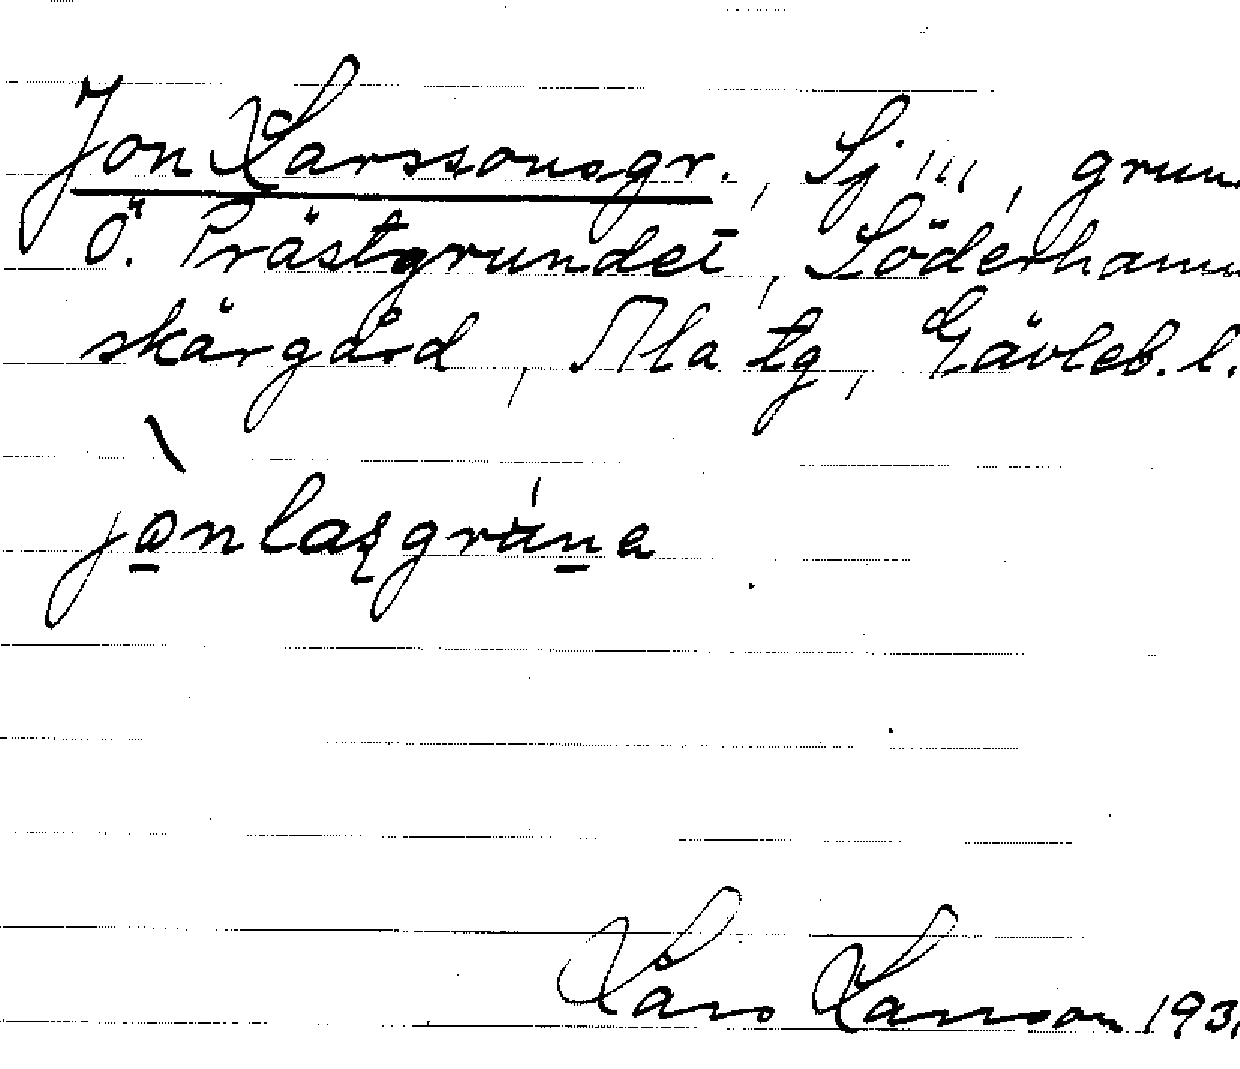 Jon Larssonsgr., Sj ''', grun
Ö. Prästgrundet, Söderhamns
skärgård, Ala tg, Gävleb. l.
Lars Larsson 193